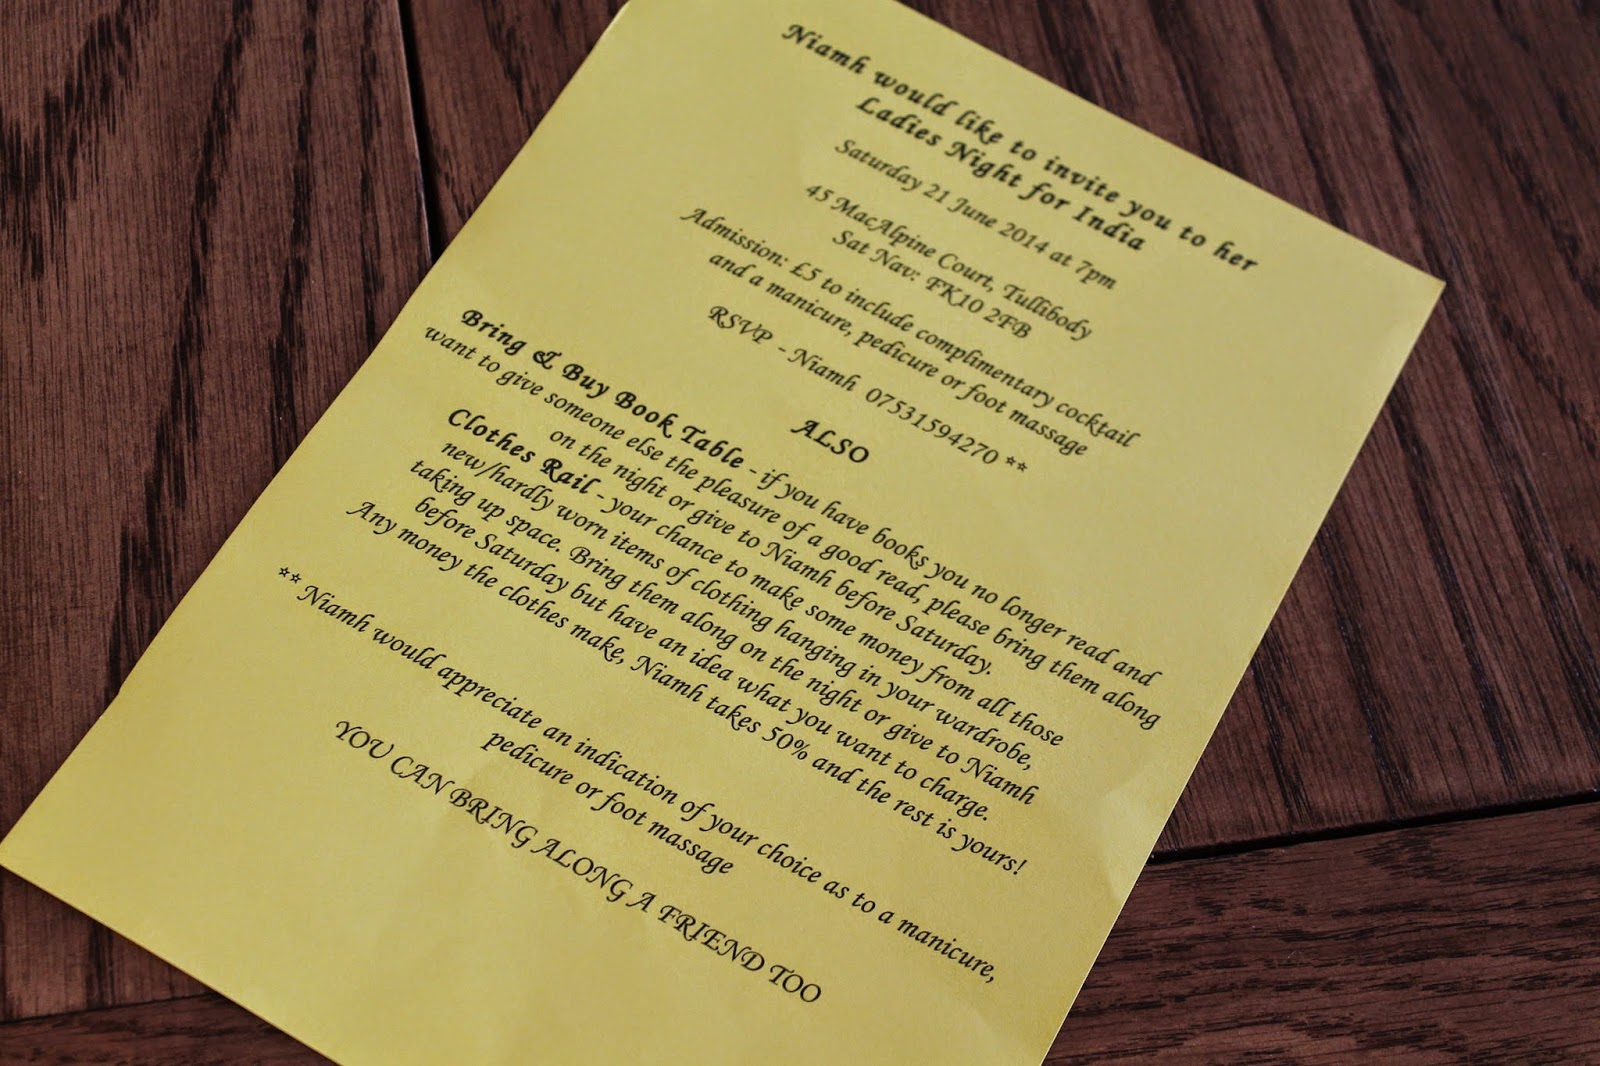 Niamh would like to invite you to her
Ladies Night for India
Saturday 21 June 2014 at 7pm
45 MacAlpine Court, Tullibody
Sat Nav: FK10 2FB
Admission: £5 to include complimentary cocktail
and a manicure, pedicure or foot massage
RSVP - Niamh 07531594270 **
ALSO
Bring & Buy Book Table - if you have books you no longer read and
want to give someone else the pleasure of a good read, please bring them along
on the night or give to Niamh before Saturday.
Clothes Rail - your chance to make some money from all those
new/hardly worn items of clothing hanging in your wardrobe,
taking up space. Bring them along on the night or give to Niamh
before Saturday but have an idea what you want to charge.
Any money the clothes make, Niamh takes 50% and the rest is yours!
** Niamh would appreciate an indication of your choice as to a manicure,
pedicure or foot massage
YOU CAN BRING ALONG A FRIEND TOO